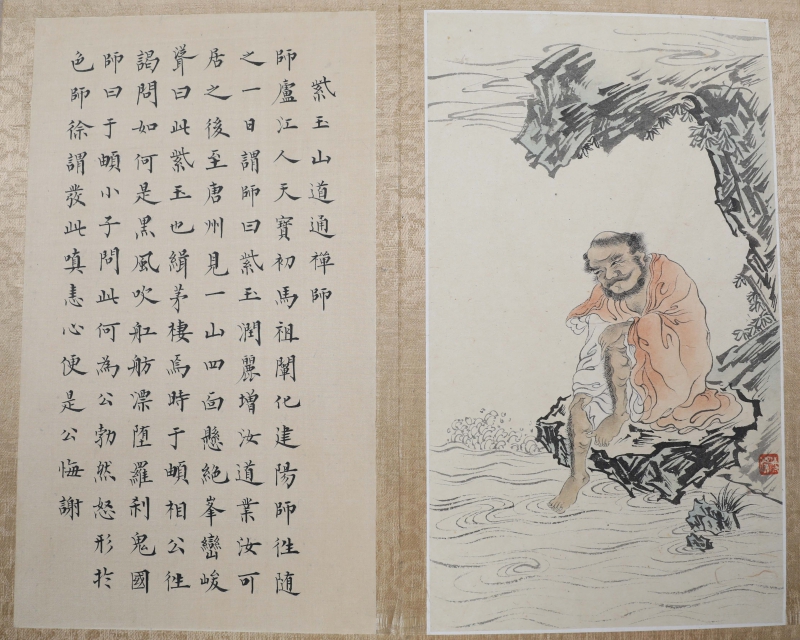 紫玉山道通禪師
師廬江人天寶初馬祖闡化建陽師徃随
之一日謂師曰紫玉潤麗增汝道業汝可
居之後至唐州見一山四面懸絕峯巒峻
聳曰此紫玉也緝茅棲焉時于頔相公徃
謁問如何是黑風吹舡舫漂堕羅刹鬼國
師曰于頔小子問此何為公勃然怒形於
色師徐謂發此嗔恚心便是公悔謝